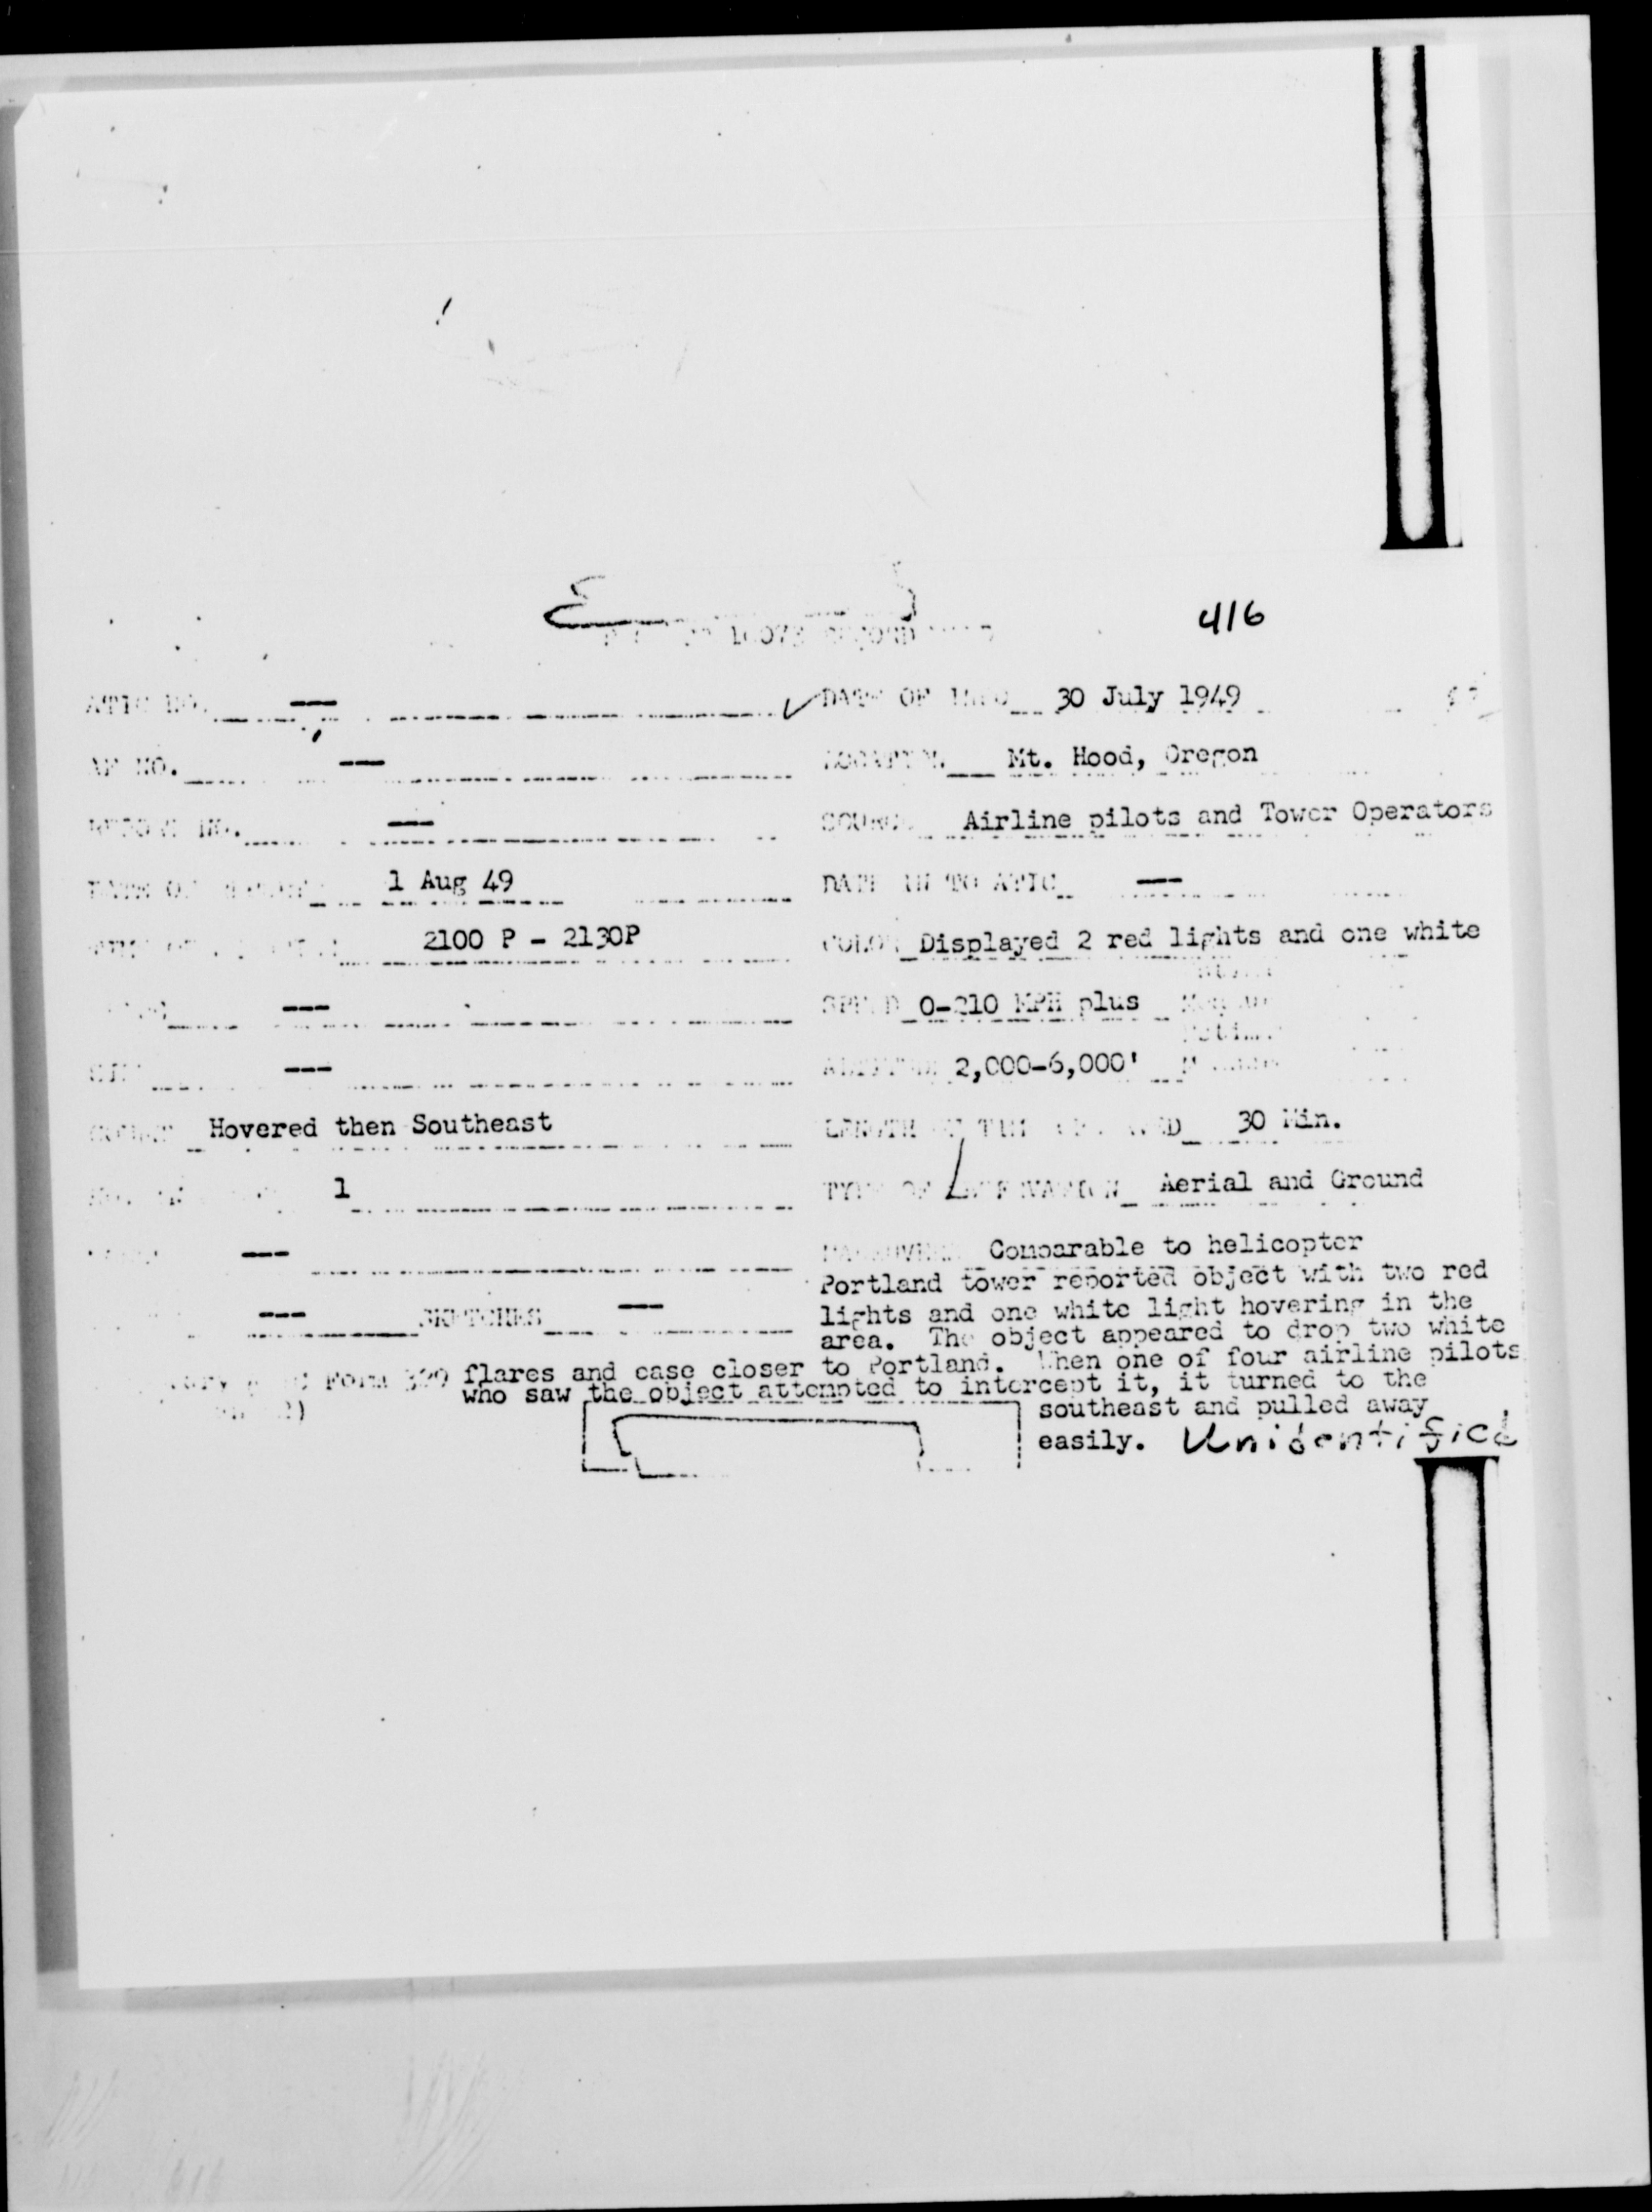 416
10073 RECORD
ATIC NO. ---
DATE OF INFO 30 July 1949
AF NO. ---
LOCATION Mt. Hood, Oregon
REPORT NO. ---
SOURCE Airline pilots and Tower Operators
DATE OF REPORT 1 Aug 49
DATE IN TO ATIC ---
2100 P - 2130P
COLOR Displayed 2 red lights and one white
---
SPEED 0-210 MPH plus
---
ALTITUDE 2,000-6,000'
COURSE Hovered then Southeast
LENGTH OF TIME OBSERVED 30 Min.
1
TYPE OF OBSERVATION Aerial and Ground
---
MANEUVERS Comparable to helicopter
Portland tower reported object with two red
--- SKETCHES ---
lights and one white light hovering in the
area. The object appeared to drop two white
Form 329 flares and case closer to Portland. When one of four airline pilots
who saw the object attempted to intercept it, it turned to the
southeast and pulled away
easily. Unidentified